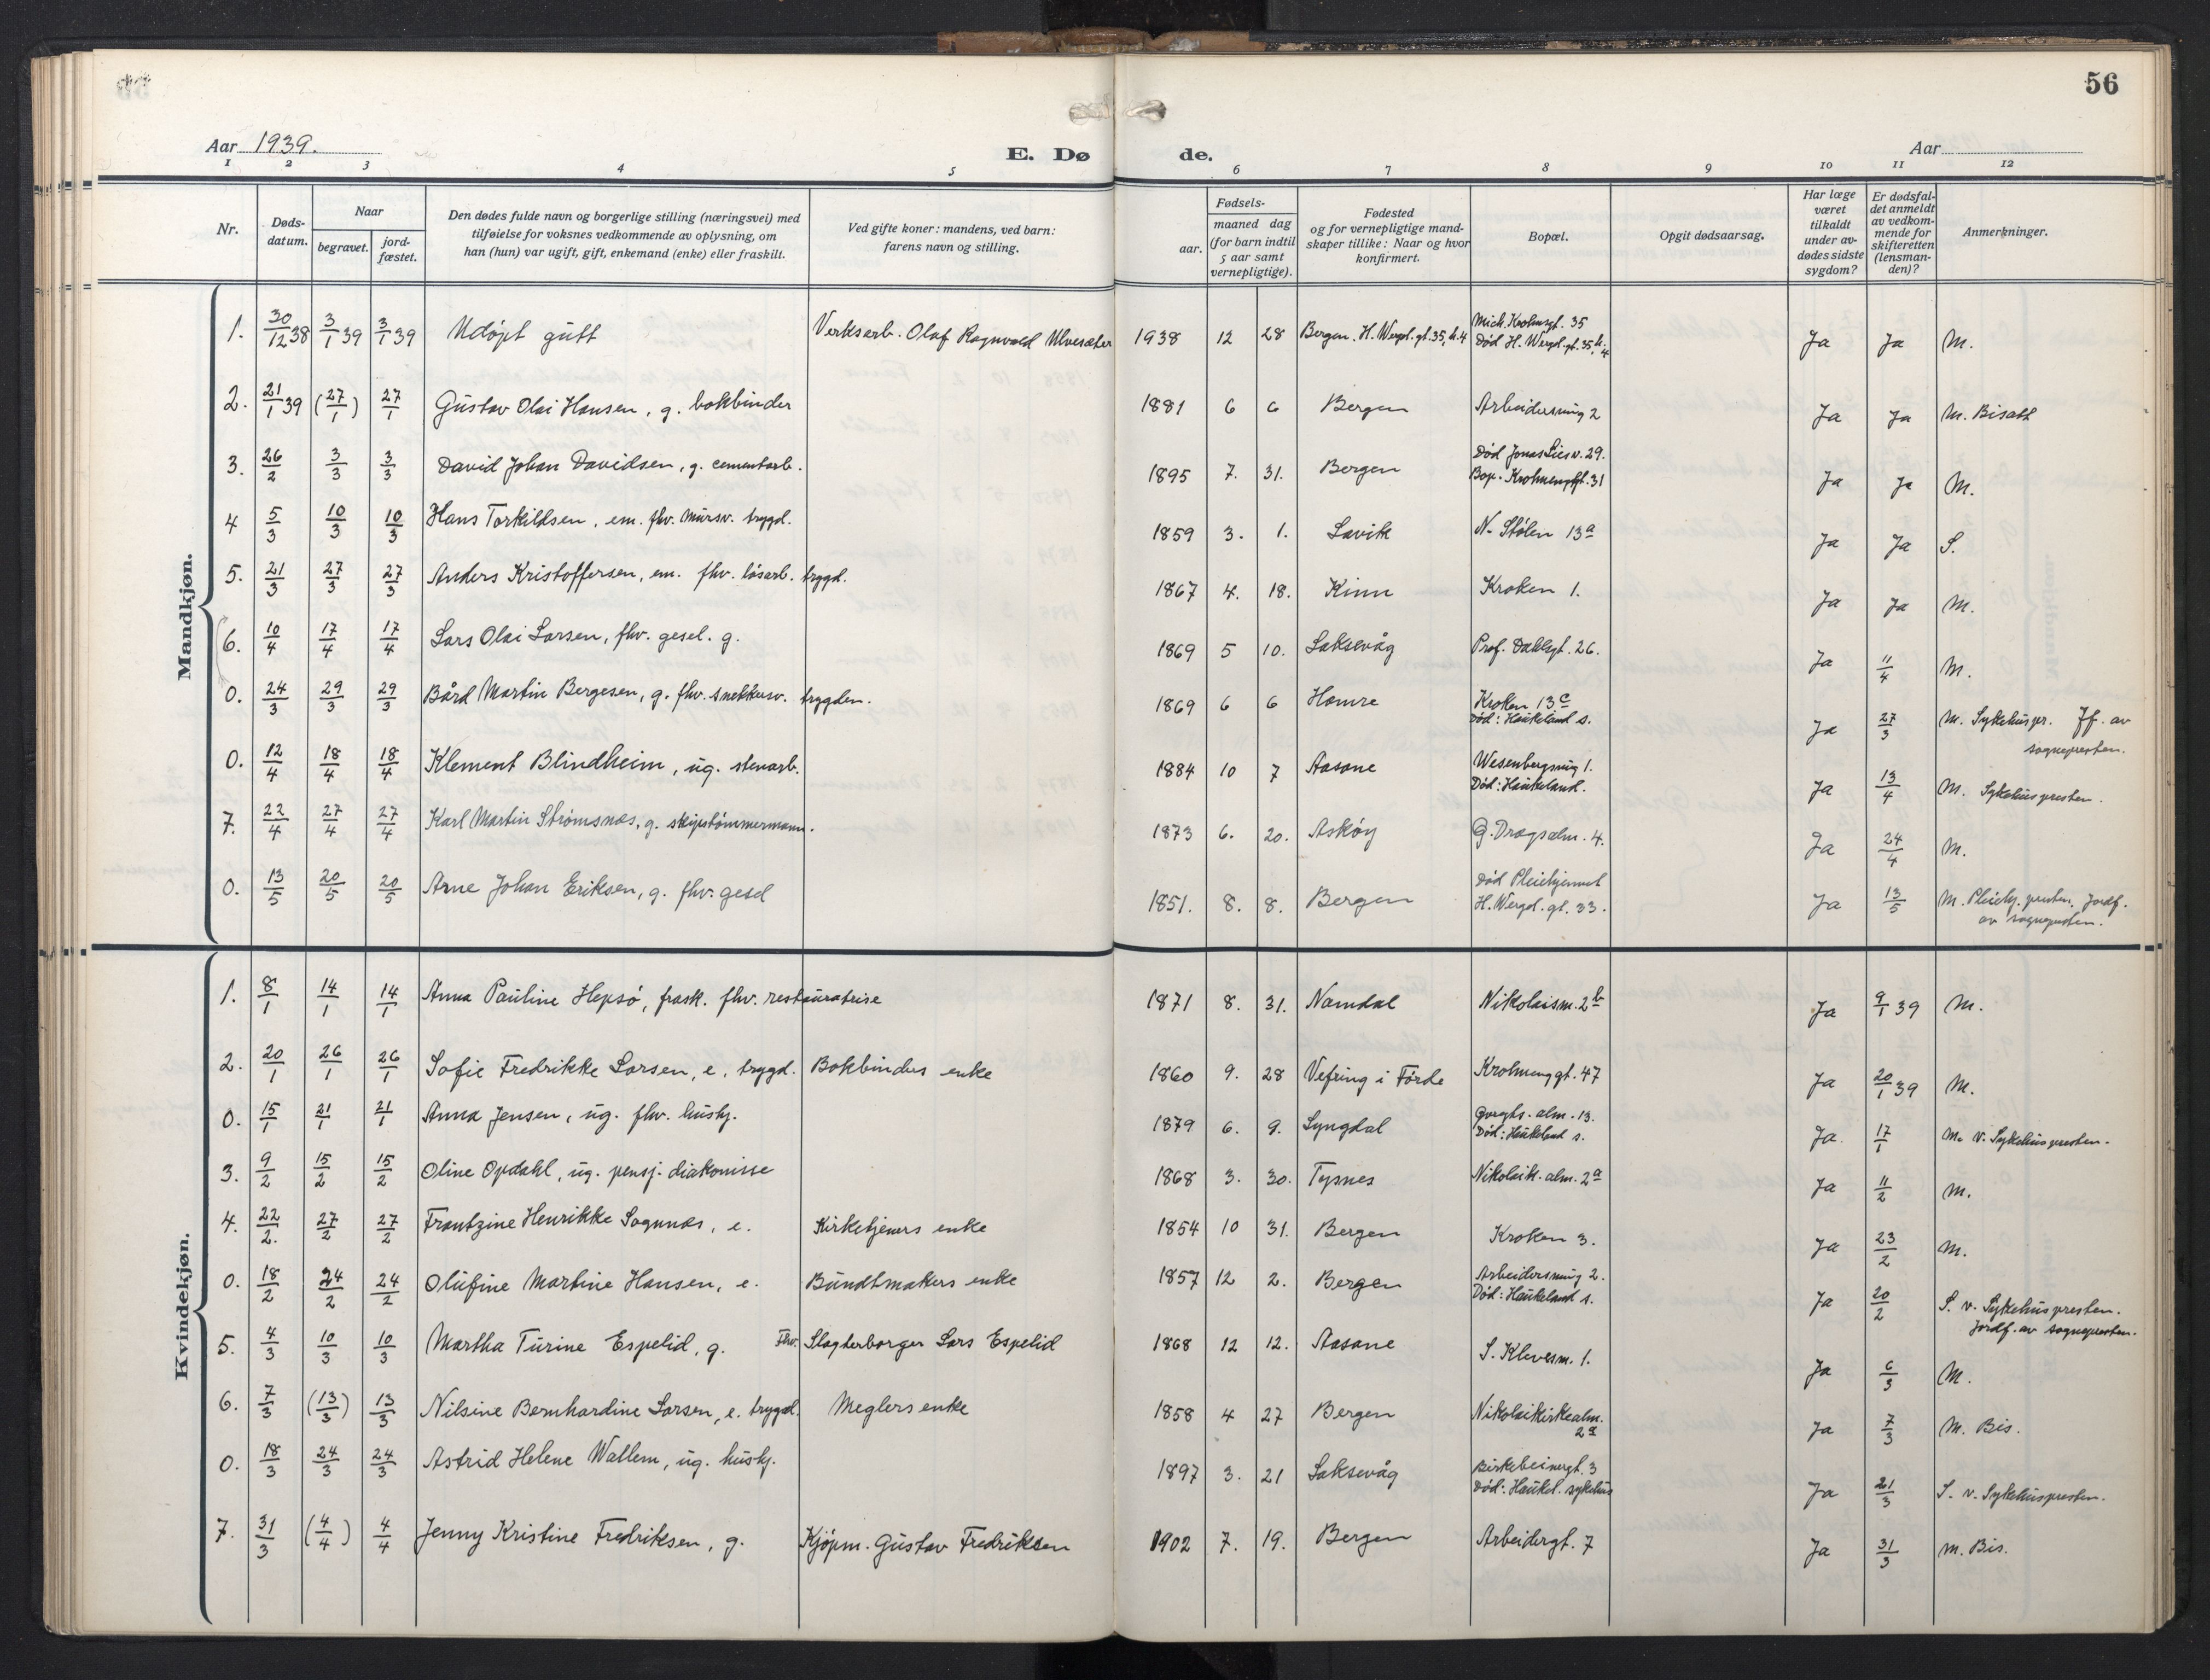 56
Aar 1939.
E. Dø
de.
Aar
1 2 3 4 5 6 7 8 9 10 11 12
Nr.
Døds-
datum.
Naar
begravet.
jord-
fæstet.
Den dødes fulde navn og borgerlige stilling (næringsvei) med
tilføielse for voksnes vedkommende av oplysning, om
han (hun) var ugift, gift, enkemand (enke) eller fraskilt.
Ved gifte koner: mandens, ved barn:
farens navn og stilling.
Fødsels-
aar.
maaned dag
(for barn indtil
5 aar samt
vernepligtige).
Fødested
og for vernepligtige mand-
skaper tillike: Naar og hvor
konfirmert.
Bopæl.
Opgit dødsaarsag.
Har læge
været
tilkaldt
under av-
dødes sidste
sygdom?
Er dødsfal-
det anmeldt
av vedkom-
mende for
skifteretten
(lensman-
den)?
Anmerkninger.
Mandkjøn.
1. 30/12 38 3/1 39 3/1 39 Udøpt gutt Verksarb. Olaf Ragnvald Ulvesæter 1938 12 28 Bergen. H. Wergl. gt. 35, h. 4 Mich. Krohnsgt. 35 Ja Ja M.
Død H. Wergl. gt. 35, h. 4
2. 21/1 39 (27/1) 27/1 Gustav Olai Hansen, g. bokbinder 1881 6 6 Bergen Arbeidersmug 2 Ja Ja M. Bisatt
3. 26/2 3/3 3/3 David Johan Davidsen, g. cementarb. 1895 7. 31. Bergen Død Jonas Liesv. 29. Ja Ja M.
Bop. Krohnenggt. 31
4 5/3 10/3 10/3 Hans Torkildsen, em. fhv. mursv. trygd. 1859 3. 1. Lavik N. Stølen 13a Ja Ja S.
5. 21/3 27/3 27/3 Anders Kristoffersen, em. fhv. løsarb. trygd. 1867 4. 18. Kinn Kroken 1. Ja Ja M.
6. 10/4 17/4 17/4 Lars Olai Larsen, fhv. gesel. g. 1869 5 10. Laksevåg Prof. Dahlsgt. 26. Ja 11/4 M.
0. 24/3 29/3 29/3 Bård Martin Bergesen, g. fhv. snekkersv. trygden. 1869 6 6 Hamre Kroken 13c Ja 27/3 M. Sykehuspr. Jf. av
Død: Haukeland s. sognepresten.
0. 12/4 18/4 18/4 Klement Blindheim, ug. stenarb. 1884 10 7 Aasane Wesenbergsmug 1. Ja 13/4 M. Sykehuspresten.
Død: Haukeland.
7. 22/4 27/4 27/4 Karl Martin Strømsnes, g. skipstømmermann. 1873 6. 20. Askøy G. Dragsalm. 4. Ja 24/4 M.
0. 13/5 20/5 20/5 Arne Johan Eriksen, g. fhv. gesel 1851. 8. 8. Bergen Død Pleiehjemmet Ja 13/5 M. Pleiehj. presten. Jordf.
H. Wergel. gt. 33. av sognepresten.
Kvindekjøn.
1. 8/1 14/1 14/1 Anna Pauline Hepsø, frask. fhv. restauratrise 1871 8. 31. Namdal Nikolaism. 2b Ja 9/1 39 M.
2. 20/1 26/1 26/1 Sofie Fredrikke Larsen, e. trygd. Bokbinders enke 1860 9. 28 Vefring i Førde Krohnenggt. 47 Ja 20/1 39 M.
0. 15/1 21/1 21/1 Anna Jensen, ug. fhv. hushj. 1879 6. 9. Lyngdal alm. 13. Ja 17/1 M. v. Sykehuspresten.
Død: Haukeland s.
3. 9/2 15/2 15/2 Oline Opdahl, ug. pensj. diakonisse 1868 3. 30. Tysnes Nikolaik. alm. 2a Ja 11/2 M.
4. 22/2. 27/2 27/2 Frantzine Henrikke Sognnæs, e. Kirketjeners enke 1854 10 31. Bergen Kroken 3. Ja 23/2 M.
0. 18/2 24/2 24/2 Olufine Martine Hansen, e. Bundtmakers enke 1857 12 2. Bergen Arbeidersmug 2. Ja 20/2 S. v. Sykehuspresten.
Død: Haukeland s. Jordf. av sognepresten.
5. 4/3 10/3 10/3 Martha Turine Espelid, g. Fhv. Slagterborger Lars Espelid 1868 12 12. Aasane S. Klevesm. 1. Ja 6/3 M.
6. 7/3 (13/3) 13/3 Nilsine Bernhardine Larsen, e. trygd. Meglers enke 1858 4 27 Bergen Nikolaikirkealm. 2a Ja 7/3 M. Bis.
0. 18/3 24/3 24/3 Astrid Helene Wallem, ug. hushj. 1897 3. 21 Laksevåg Birkebeinergt. 3 Ja 21/3 S. v. Sykehuspresten.
Død: Haukel. sykehus
7. 31/3 (4/4) 4/4 Jenny Kristine Fredriksen, g. Kjøpm. Gustav Fredriksen 1902 7. 19. Bergen Arbeidergt. 7 Ja 31/3 M. Bis.